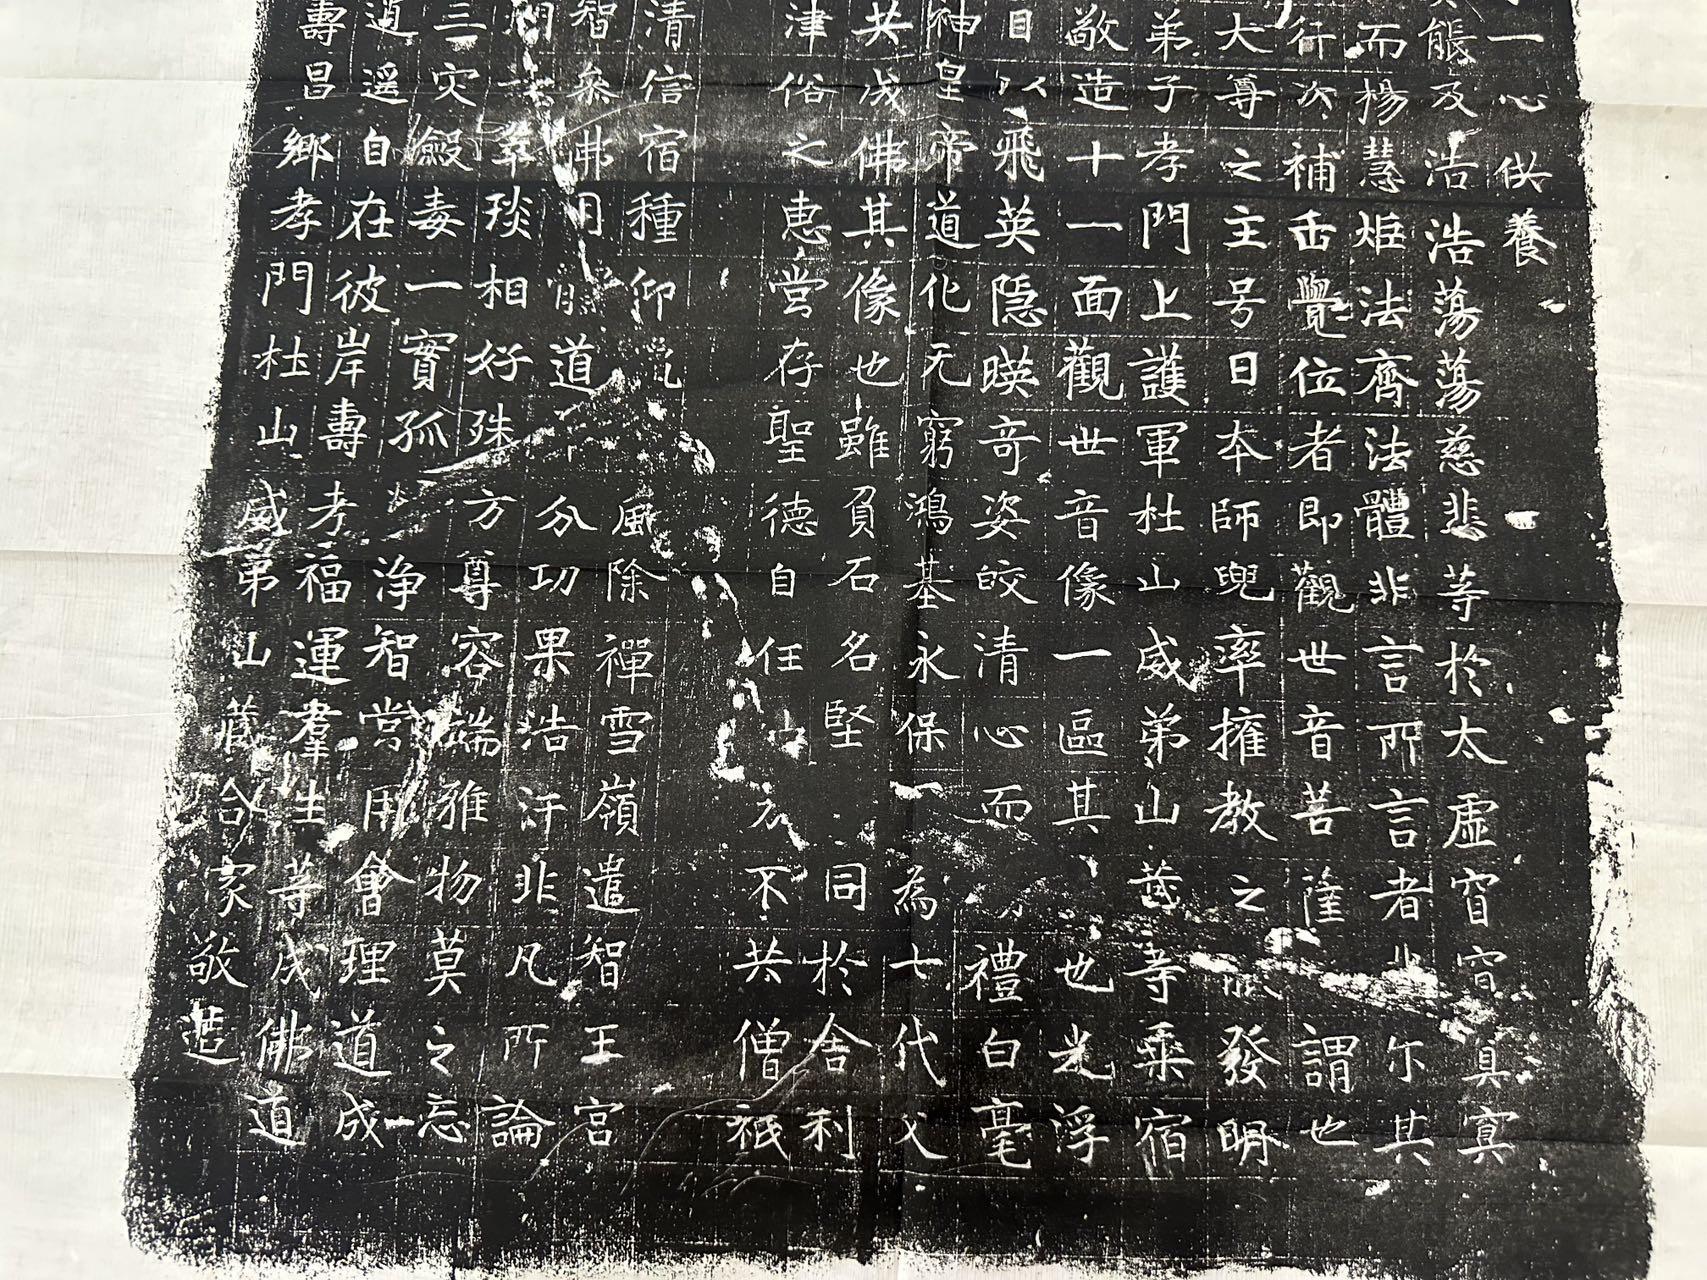 一心供養
能及浩浩蕩蕩慈悲等於太虛窅窅真寞
而楊慧炬法齊法體非言所言者非尓其
行次補正覺位者即觀世音菩薩謂也
大尊之主号曰本師兜率擁教之發明
弟子孝門上護軍杜山威弟山藏等乘宿
敬造十一面觀世音像一區其也光浮
目以飛英隱暎奇姿皎清心而禮白毫
神皇帝道化无窮鴻基永保一為七代父
共成佛其像也雖負石名堅同於舍利
津俗之惠嘗存聖德自任山衣不共僧祇
清信宿種仰風除禪雪嶺遣智王宮
智參佛月道分功果浩汗非凡所論
琰相好殊方尊容端雅物莫之忘
三灾殿毒一實孤淨智常用會理道成
逍遥自在彼岸壽考福運羣生等成佛道
壽昌鄉孝門杜山威弟山藏合家敬造